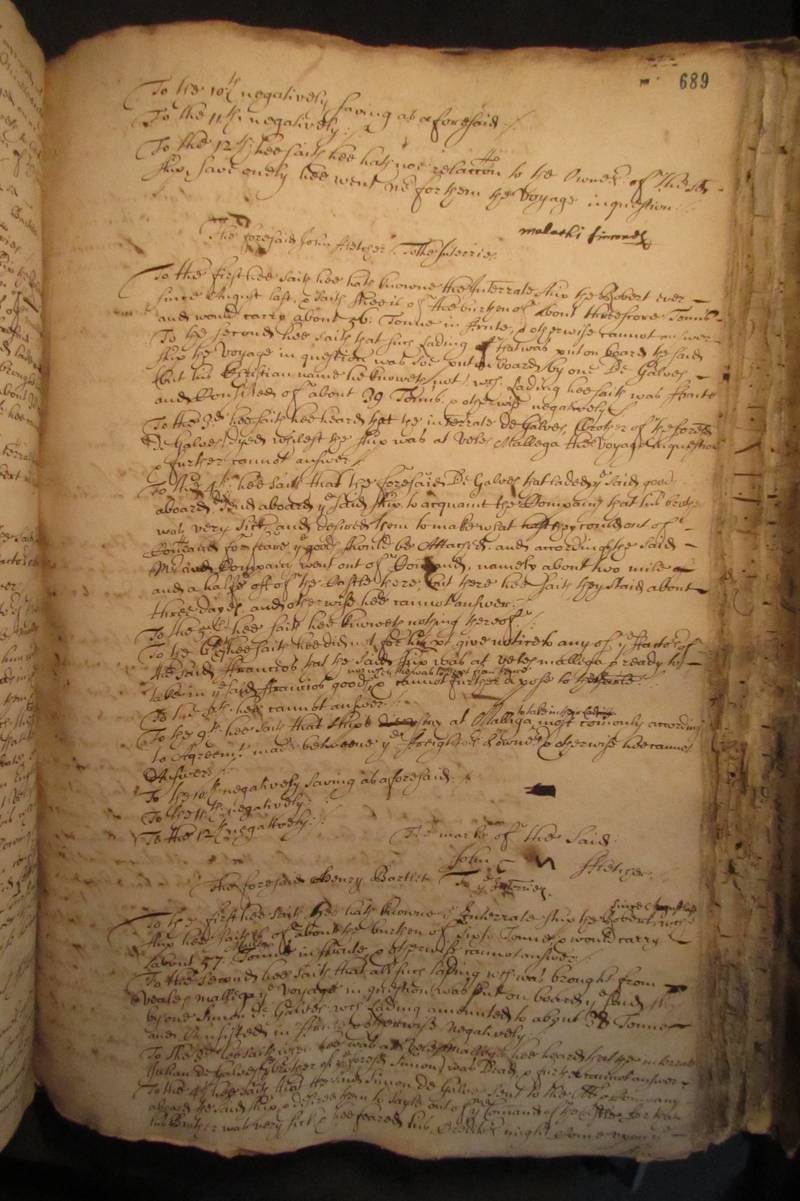 689
To the 10th negatively saving as aforesaid
To the 11th negatively
To the 12th hee saith hee hath noe relation to the Owners of the sd
ship, save onely hee went in her for them the voyage in question
malachi simonds
The foresaid John Fletcher To the Interries
To the first hee saith hee hath knowne the Interrate ship the Robert ever
since August last, & saith shee is of the burthen of about threescore Tonns
and would carry about 56 Tonne in fruite, & otherwise cannot answer
To the second hee saith that such Lading that was put on board the said
ship the voyage in question was soe put on board by one De Galves
(but his Christian name he knoweth not) wch Lading hee saith was fruite
and Consisted of about 39 Tonns, & otherwise negatively
To the 3d hee saith hee heard that the interrate de Galves, brother of the foresd
De Galves dyed whilest the ship was at Veles Mallega the voyage in question
& further cannot answer
To the 4th hee saith that the foresaid De Galves that laded ye said goods
aboard, send aboard ye said ship to acquaint the Company that his brother
was very sick, and desired them to make what they could out of
Comand for feare ye goods should be Attached, and accordingly the said
Company went out of Comand, namely about two miles
and a halfe off of the Castle there, but there hee saith they staid about
three dayes, and otherwise hee cannot answer
To the 5th hee saith hee knoweth nothing thereof
To the hee saith hee did not give notice to any of ye Factors of
the said Francios that the said ship was at veles mallega & ready to
take in ye said Francios goods, & cannot further depose
To the 8th hee cannot answer
To the 9th hee saith that ships stay at Mallega most comonly according
to Agreemt made betweene ye freighters & owners & otherwise hee cannot
Answer
To the 10th negatively saving as aforesaid
To the 11th negatively
To the 12th negatively
The marke of the said
John Fletcher
The foresaid Henry Bartlett To ye Interries
To the first hee saith hee hath knowne ye Interrate ship the Robert
since August last
ship hee saith is of about the burthen of sixty Tonnes & would carry
about 57 Tonne in fruite, & otherwise cannot answer
To the second hee saith that all such lading wch was brought from
veales mallega ye voyage in question was put on board ye said
by one Simon de Galves wch Lading amounted to about 38 Tonne
and Consisted in otherwise Negatively
To the 3d hee saith hee was at veles mallega hee heard that the interrate
de Galves brother of ye foresd Simon was Dead, & further cannot answer
To the 4th hee saith that the said Simon de Galves sent to the Company
aboard the said ship & desired them to sayle out of ye Comand of the for that
his brother was very sick & hee feared his Creditors might come upon ye